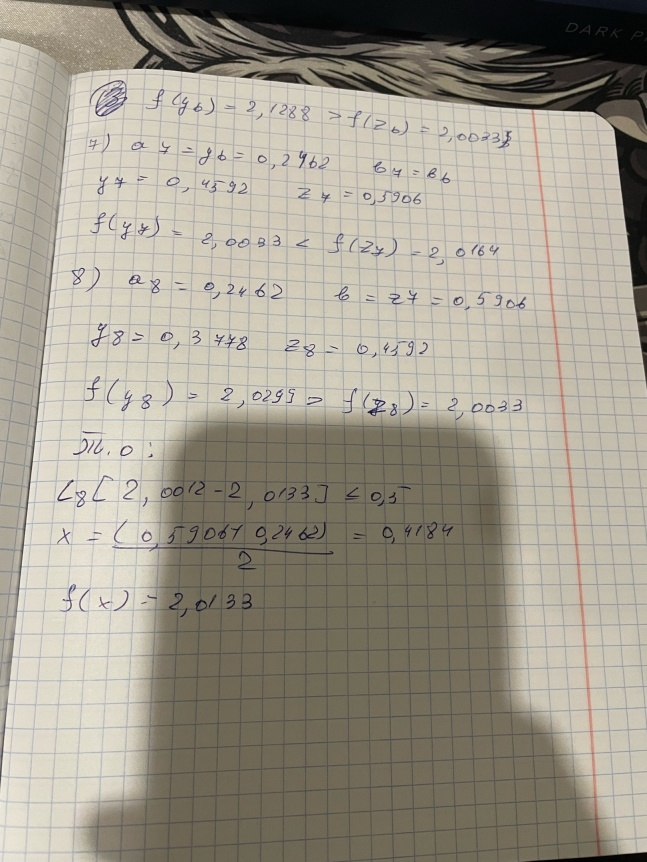 DARK P
f(y6) = 2,1288 > f(z6) = 2,0033
7) a7 = y6 = 0,2462 b7 = b6
y7 = 0,4592 z7 = 0,5906
f(y7) = 2,0033 < f(z7) = 2,0164
8) a8 = 0,2462 b = z7 = 0,5906
y8 = 0,3778 z8 = 0,4592
f(y8) = 2,0299 > f(z8) = 2,0033
Т.о:
L8[2,0012-2,0133] ≤ 0,5
x = (0,5906+0,2462)/2 = 0,4184
f(x) = 2,0133